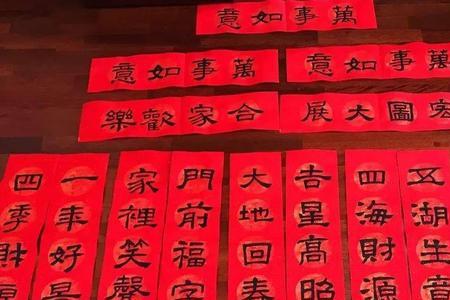 萬事如意
萬事如意
萬事如意
宏圖大展
合家歡樂
五湖生意
四海財源
吉星高照
大地回春
門前福字
家裡笑聲
一年好景
四季財